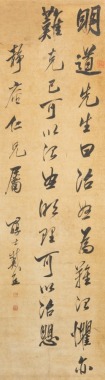 明道先生曰治怒為難治懼亦
難克己可以治怒明理可以治懼
靜庵仁兄屬